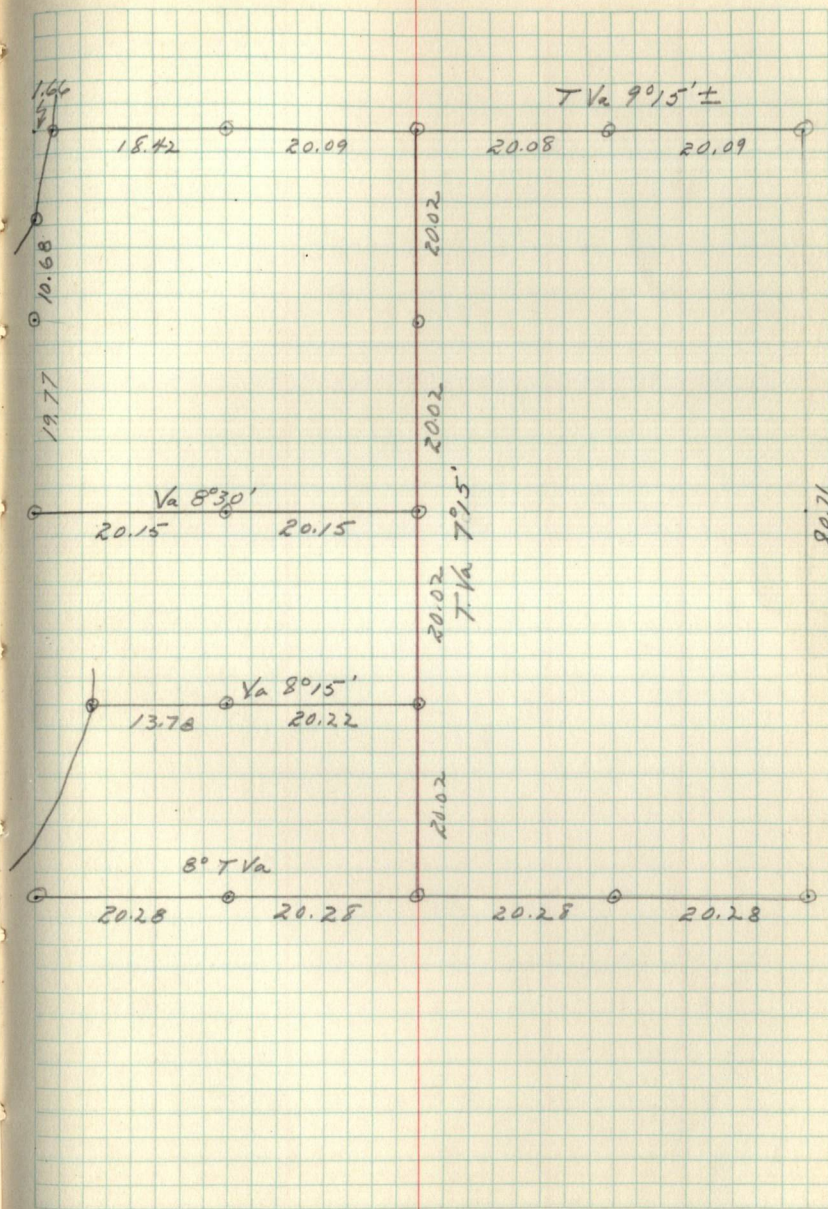 1.66
T Va 9°15' ±
18.42 20.09 20.08 20.09
20.02
10.68
19.77
20.02
Va 8°30'
20.15 20.15
T. Va 7°15'
80.71
20.02
Va 8°15'
13.78 20.22
20.02
8° T Va
20.28 20.28 20.28 20.28